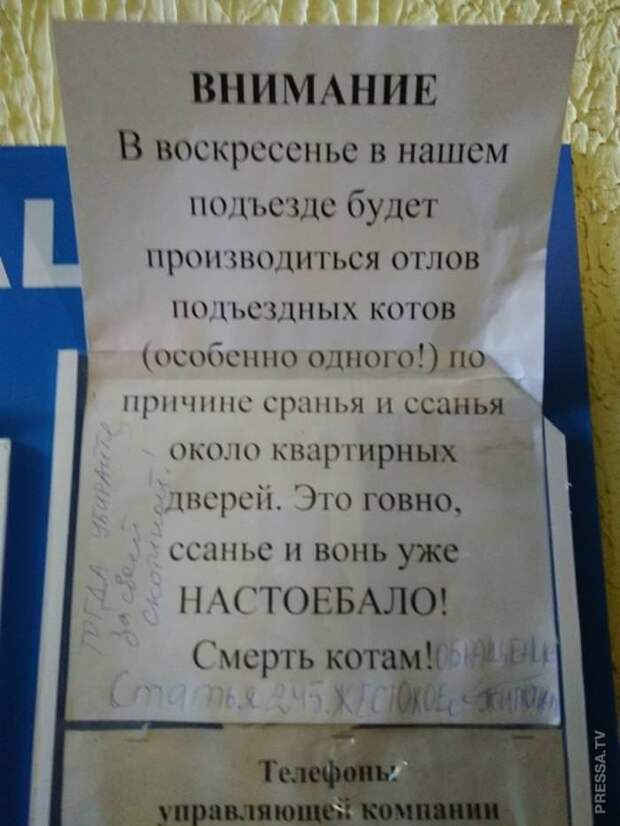 ВНИМАНИЕ
В воскресенье в нашем
подъезде будет
производиться отлов
подъездных котов
(особенно одного!) по
причине сранья и ссанья
около квартирных
дверей. Это говно,
ссанье и вонь уже
НАСТОЕБАЛО!
Смерть котам!
ТОГДА УБИРАЙТЕ
за своей
скотиной!
Статья 245 ЖЕСТОКОЕ
ОБРАЩЕНИЕ
Телефоны
управляющей компании
PRESSA.TV